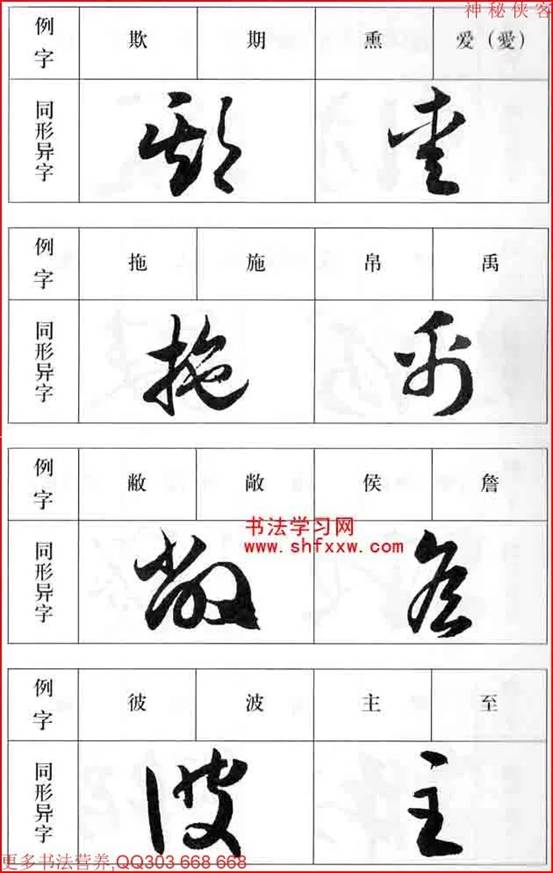 神秘侠客
例字 欺 期 熏 爱（愛）
同形异字
例字 拖 施 帛 禹
同形异字
例字 敝 敞 侯 詹
书法学习网
www.shfxxw.com
同形异字
例字 彼 波 主 至
同形异字
更多书法营养,QQ303 668 668